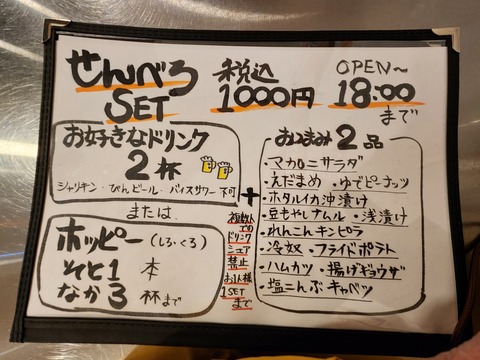 せんべろ
SET
税込
1000円
OPEN〜
18:00
まで
お好きなドリンク
2杯
シャリキン・びんビール・バイスサワー不可
または
ホッピー(しろ・くろ)
そと1本
なか3杯まで
+
複数人
での
ドリンク
シェア
禁止
お1人様
1SET
まで
おつまみ2品
・マカロニサラダ
・えだまめ・ゆでピーナッツ
・ホタルイカ沖漬け
・豆もやしナムル・浅漬け
・れんこんキンピラ
・冷奴・フライドポテト
・ハムカツ・揚げギョウザ
・塩こんぶキャベツ